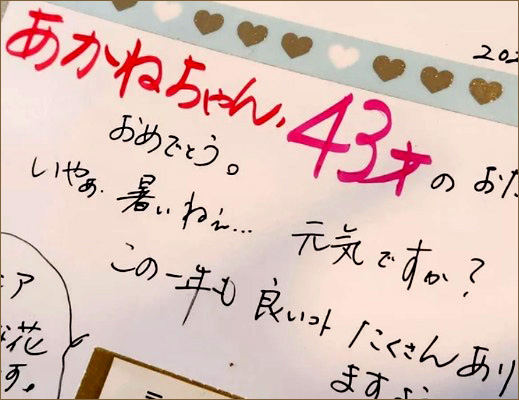 202
あかねちゃん、43才の おた
おめでとう。
いやぁ、暑いねぇ… 元気ですか？
この一年も 良いコト たくさんあり
ますよ
ア
花
す。